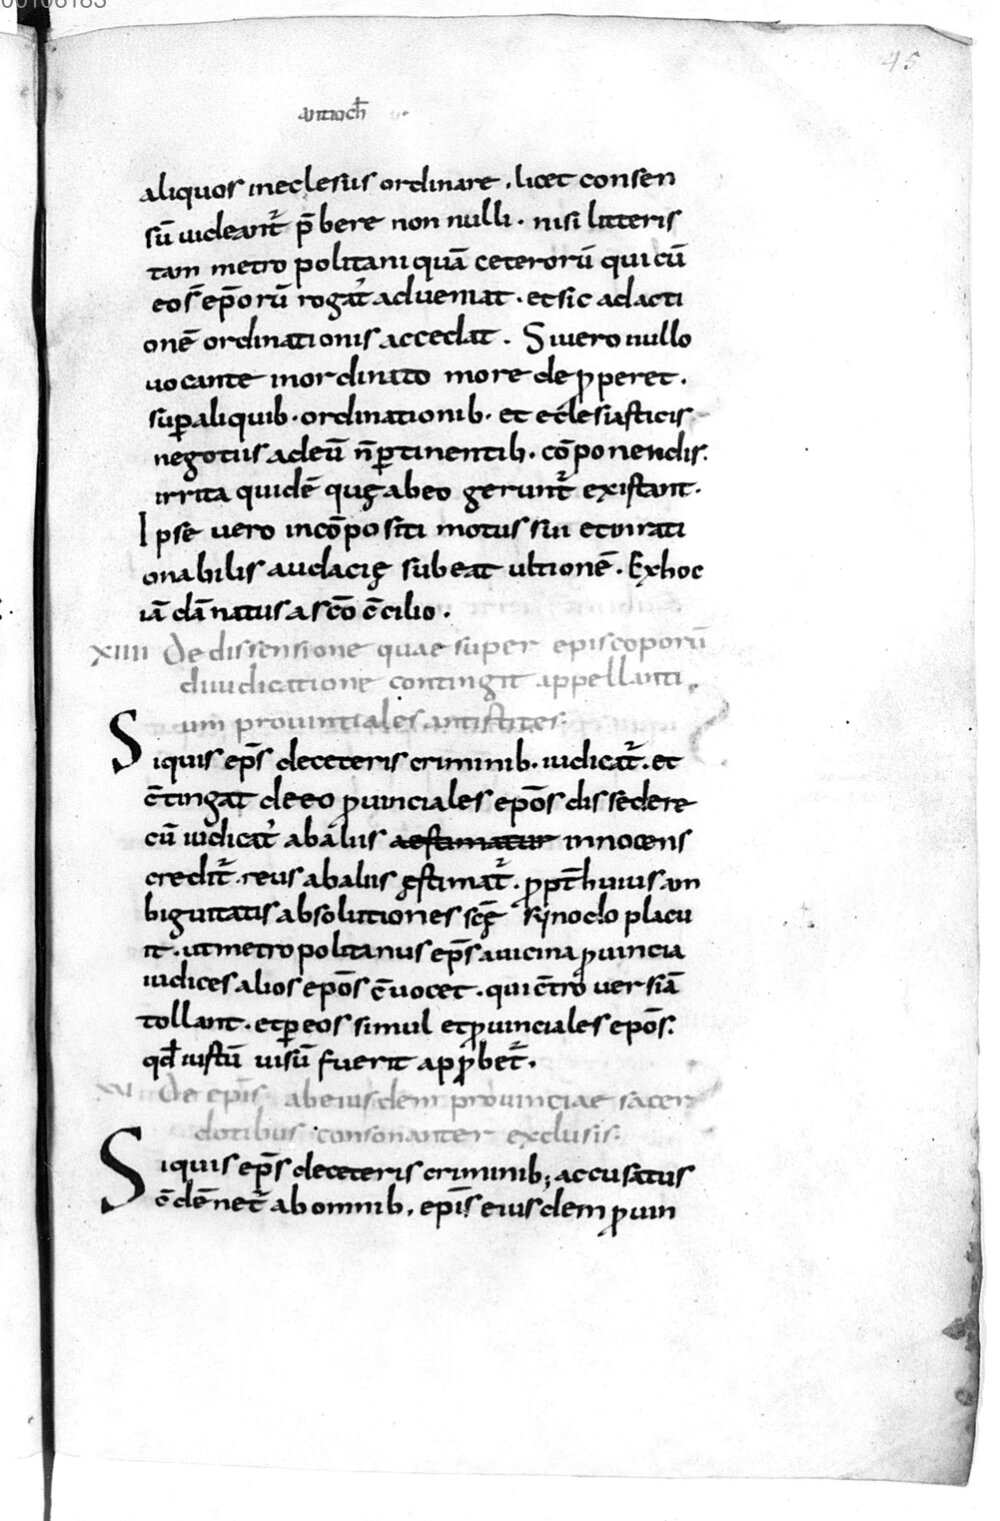 00106183
45
antioch̄
aliquos in eclesiis ordinare . licet consen
sū uideant᷑ p̄bere non nulli . nisi litteris
tam metropolitani quā ceterorū qui cū
eo s̄ ep̄orū rogat᷑ adueniat . et sic ad acti
onē ordinationis accedat . Si uero nullo
uocante inordinato more deꝓperet .
suꝑ aliquib . ordinationib . et eclesiasticis
negotiis ad eū n̄ ꝑtinentib . cōponendis .
irrita quidē quę ab eo gerunt᷑ existant .
Ipse uero incōpositi motus sui et inrati
onabilis audacię subeat ultionē . Ex hoc
iā dānatus a s̄cō c̄cilio .
XIIII De dissensione quae super episcoporū
diiudicatione contingit appellanti
um prouintiales antistites .
Si quis ep̄s de ceteris criminib . iudicat᷑ . et
c̄tingat de eo ꝓuinciales ep̄os dissedere
cū iudicat᷑ ab aliis aestimatur innocens
credit᷑ . reus ab aliis ęstimat᷑ . ꝓpt̄ huius an
biguitatis absolutiones sc̄ę synodo placu
it . ut metropolitanus ep̄s a uicina ꝓuincia
iudices alios ep̄os c̄uocet . qui c̄trouersiā
tollant . et ꝑ eos simul et ꝓuinciales ep̄os .
qd̄ iustū uisū fuerit apꝓbet᷑ .
XV De ep̄is ab eiusdem prouinciae sacer
dotibus consonanter exclusis .
Si quis ep̄s de ceteris criminib; accusatus
c̄dēnet᷑ ab omnib . ep̄is eiusdem ꝓuin